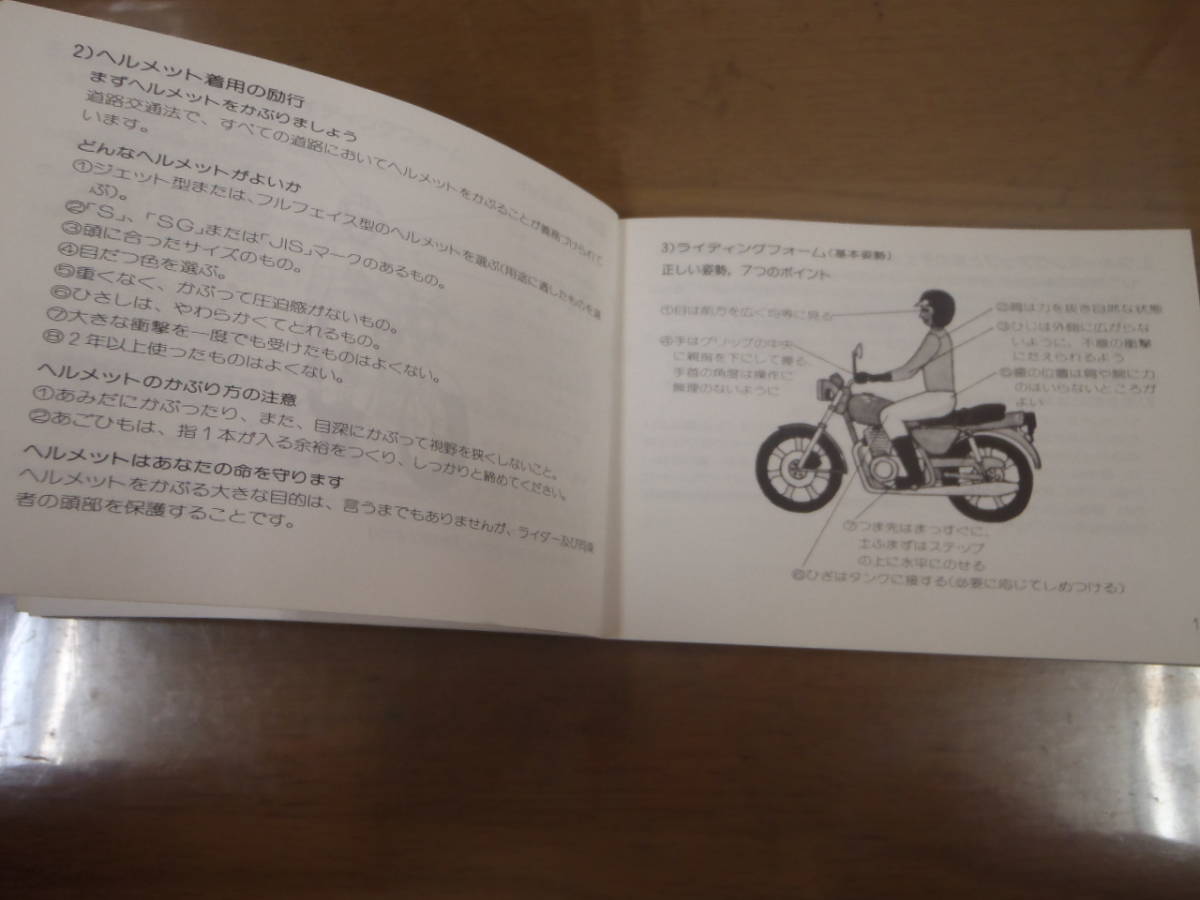 2)ヘルメット着用の励行
まずヘルメットをかぶりましよう
道路交通法で、すべての道路においてヘルメットをかぶることが義務づけられて
います。
どんなヘルメットがよいか
①ジェット型または、フルフェイス型のヘルメットを選ぶ(用途に適したものを選
ぶ)。
②「S」、「SG」または「JIS」マークのあるもの。
③頭に合ったサイズのもの。
④目だつ色を選ぶ。
⑤重くなく、かぶって圧迫感がないもの。
⑥ひさしは、やわらかくてとれるもの。
⑦大きな衝撃を一度でも受けたものはよくない。
⑧2年以上使ったものはよくない。
ヘルメットのかぶり方の注意
①あみだにかぶったり、また、目深にかぶって視野を狭くしないこと。
②あごひもは、指1本が入る余裕をつくり、しつかりと締めてください。
ヘルメットはあなたの命を守ります
ヘルメットをかぶる大きな目的は、言うまでもありませんが、ライダー及び同乗
者の頭部を保護することです。
3)ライディングフォーム(基本姿勢)
正しい姿勢，7つのポイント
①目は前方を広く均等に見る
②肩は力を抜き自然な状態
③ひじは外側に広がらな
いように、不意の衝撃
にたえられるよう
④手はグリップの中央
に親指を下にして握る
手首の角度は操作に
無理のないように
⑤腰の位置は肩や腕に力
のはいらないところが
よい
⑦つま先はまっすぐに、
土ふまずはステップ
の上に水平にのせる
⑥ひざはタンクに接する(必要に応じてしめつける)
1